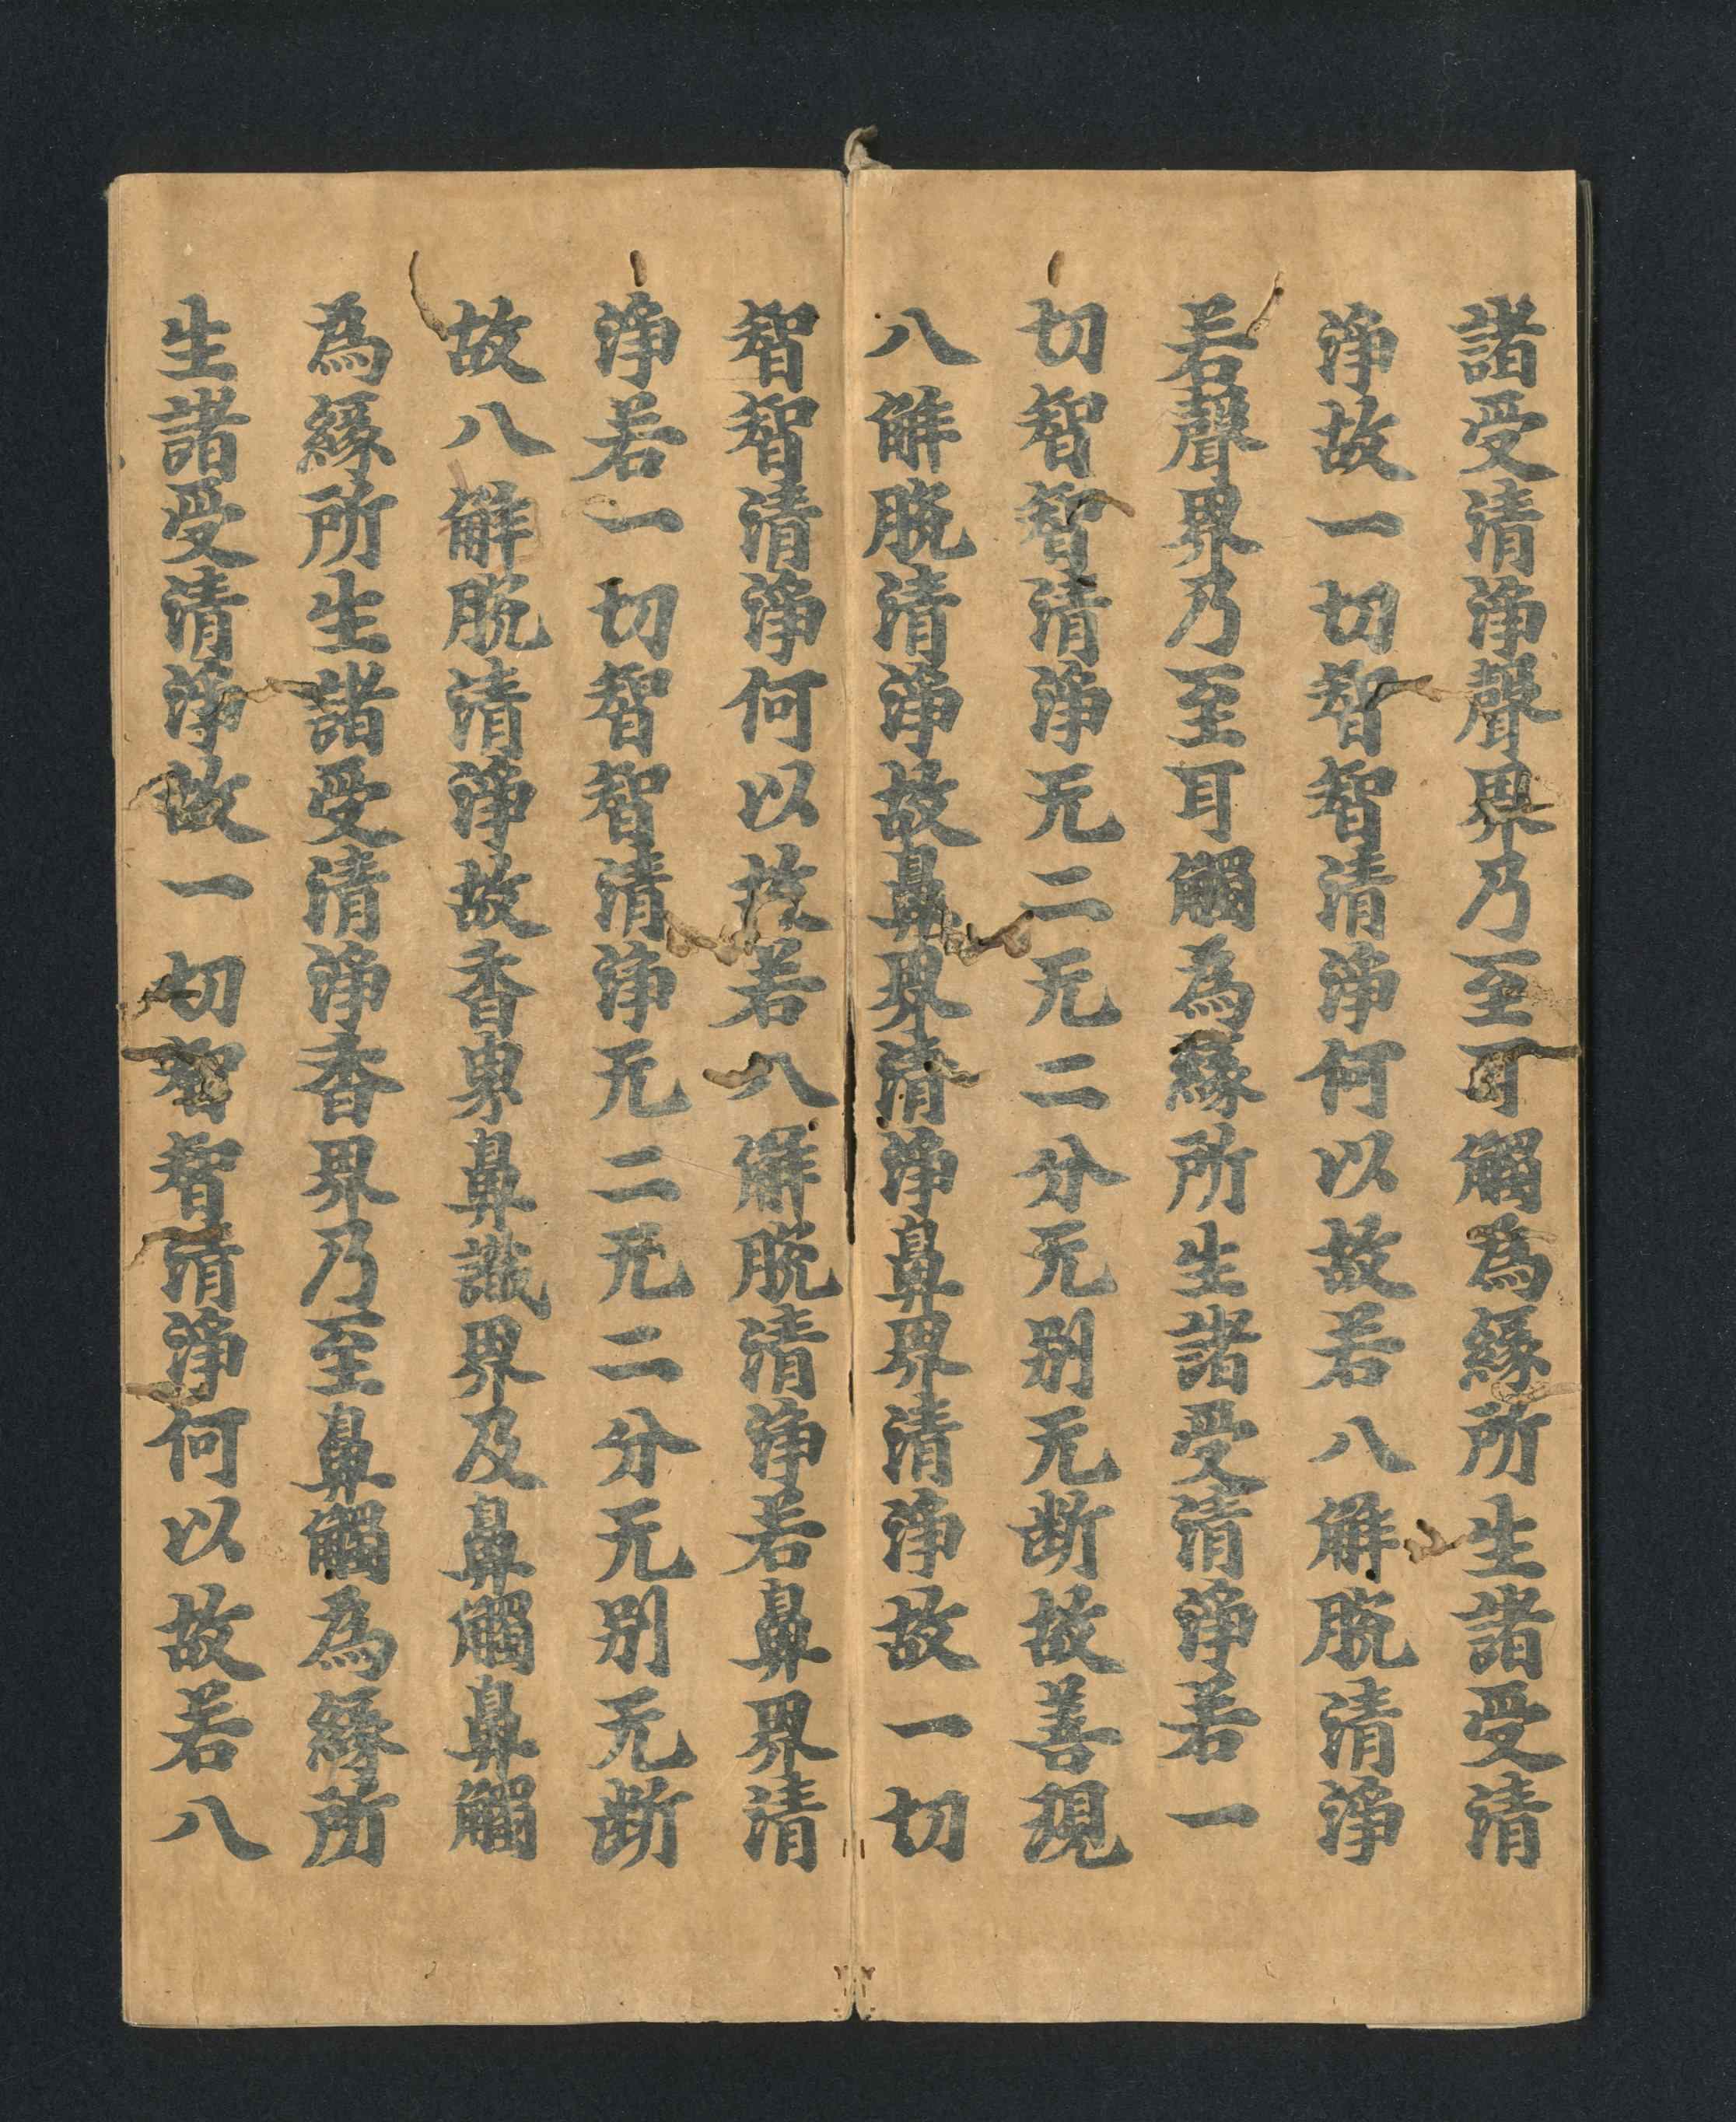 諸受清淨聲界乃至耳觸為緣所生諸受清
淨故一切智智清淨何以故若八解脫清淨
若聲界乃至耳觸為緣所生諸受清淨若一
切智智清淨无二无二分无別无斷故善現
八解脫清淨故鼻界清淨鼻界清淨故一切
智智清淨何以故若八解脫清淨若鼻界清
淨若一切智智清淨无二无二分无別无斷
故八解脫清淨故香界鼻識界及鼻觸鼻觸
為緣所生諸受清淨香界乃至鼻觸為緣所
生諸受清淨故一切智智清淨何以故若八